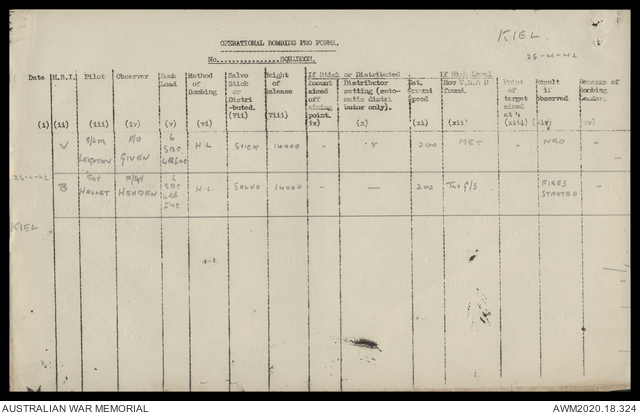 KIEL.
OPERATIONAL BOMBING PRO FORMA.
No................SQUADRON.
28-4-42
Date M.S.I. Pilot Observer Bomb Load Method of Bombing Salvo Stick or Distri-buted. Height of Release If Stick or Distributed Amount aimed off aiming point. Distributor setting (auto-matic distri butor only). Est. Ground Speed If High Level How W.S. & D found. Point of target aimed at Result if observed. Remarks of Bombing Leader.
(i) (ii) (iii) (iv) (v) (vi) (vii) (viii) ix) (x) (xi) (xii) (xiii) (xiv) (xv)
V S/LDR LEIGHTON P/O GIVEN 6 SBC H.L. STICK 14000 - .5 200 MET - NRO -
28-4-42 B HALLET F/SGT HENDEN 6 SBC H.L. SALVO 14000 - - 200 - FIRES STARTED -
KIEL
AUSTRALIAN WAR MEMORIAL
AWM2020.18.324